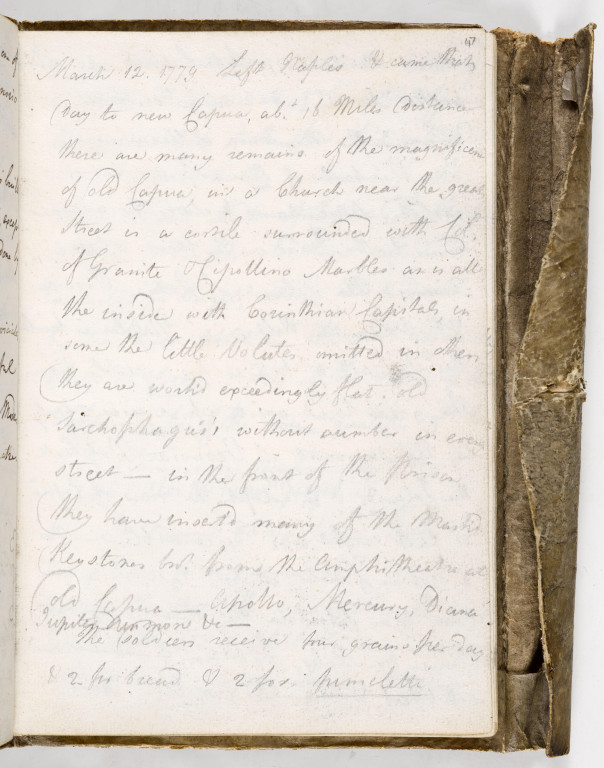 March 12. 1779 Left Naples & came that
Day to new Capua, abt. 16 Miles Distance
there are many remains of the magnificence
of old Capua, in a Church near the great
Street is a cortile surrounded with Col.
of Granite & Cipollino Marbles as is all
the inside with Corinthian Capitals, in
some the little Volutes omitted in others
they are work'd exceedingly flat. old
Sarchophagus's without number in every
street — in the front of the Prison
they have insert'd many of the Mask'd
Keystones bro. from the Amphitheatre at
old Capua — Apollo, Mercury, Diana
Jupiter Ammon &c —
the soldiers receive four grains per day
& 2 for bread & 2 for